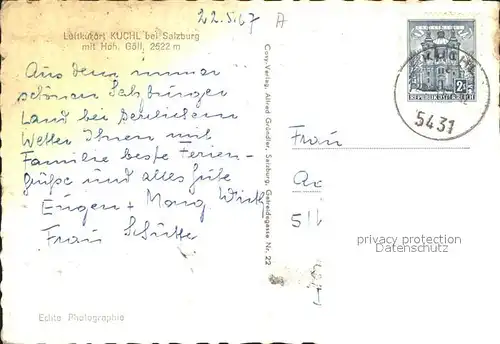 22.5.67 A
Luftkurort KUCHL bei Salzburg
mit Hoh. Göll, 2522 m
Aus dem immer
schönen Salzburger
Land bei herrlichem
Wetter Ihnen mit
Familie beste Ferien-
grüße und alles Gute
Eugen +
Frau Schütte
Echte Photographie
Cosy-Verlag, Alfred Gründler, Salzburg, Getreidegasse Nr. 22
REPUBLIK ÖSTERREICH
KUCHL
5431
Frau
privacy protection
Datenschutz